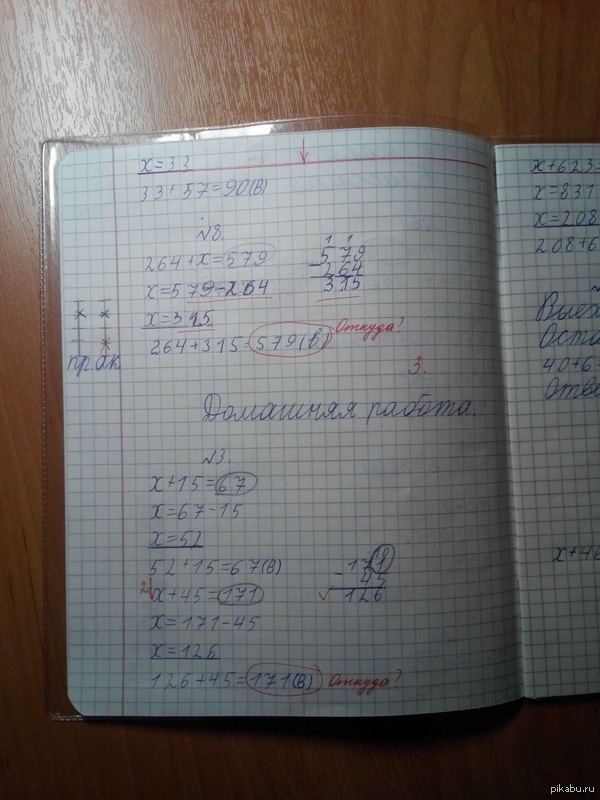 x=33
33+57=90(В)
№8.
264+x=579
x=579-264
x=315
264+315=579(В)
Откуда?
1 1
579
-264
315
3.
пр.ок
Домашняя работа.
№3.
x+15=67
x=67-15
x=52
52+15=67(В)
2) x+45=171
x=171-45
x=126
126+45=171(В) Откуда?
-171
45
126
x+623=
x=831
x=208
208+6
Выех
Оста
40+6=
Отве
x+46
pikabu.ru